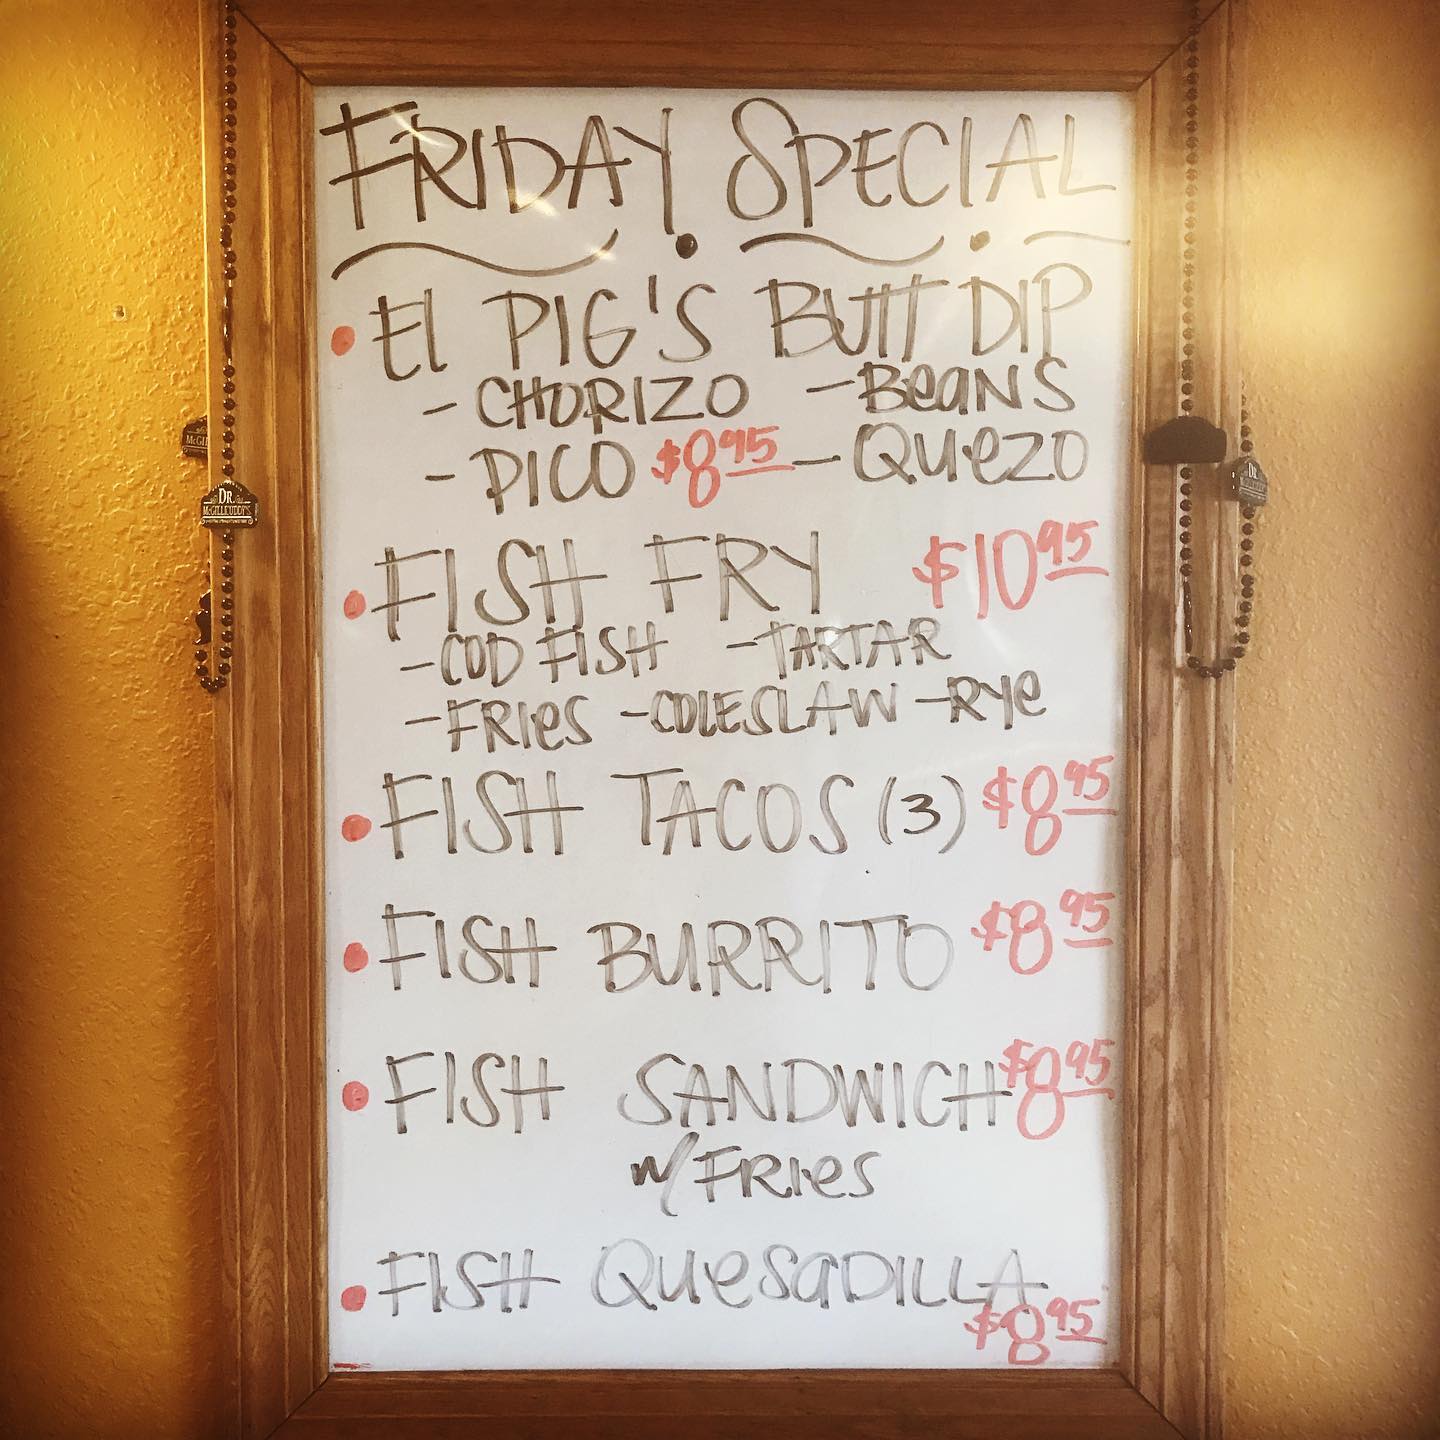 FRIDAY SPECIAL
• El PIG'S BUTT DIP
- CHORIZO - BeANS
- PICO $8.95 - QUeZO
• FISH FRY $10.95
- COD FISH - TARTAR
- FRIeS - COLESLAW - RYe
• FISH TACOS (3) $8.95
• FISH BURRITO $8.95
• FISH SANDWICH $8.95
w/ FRIeS
• FISH QUeSaDILLA
$8.95
McGIL
DR.
McGILLICUDDY'S
DR.